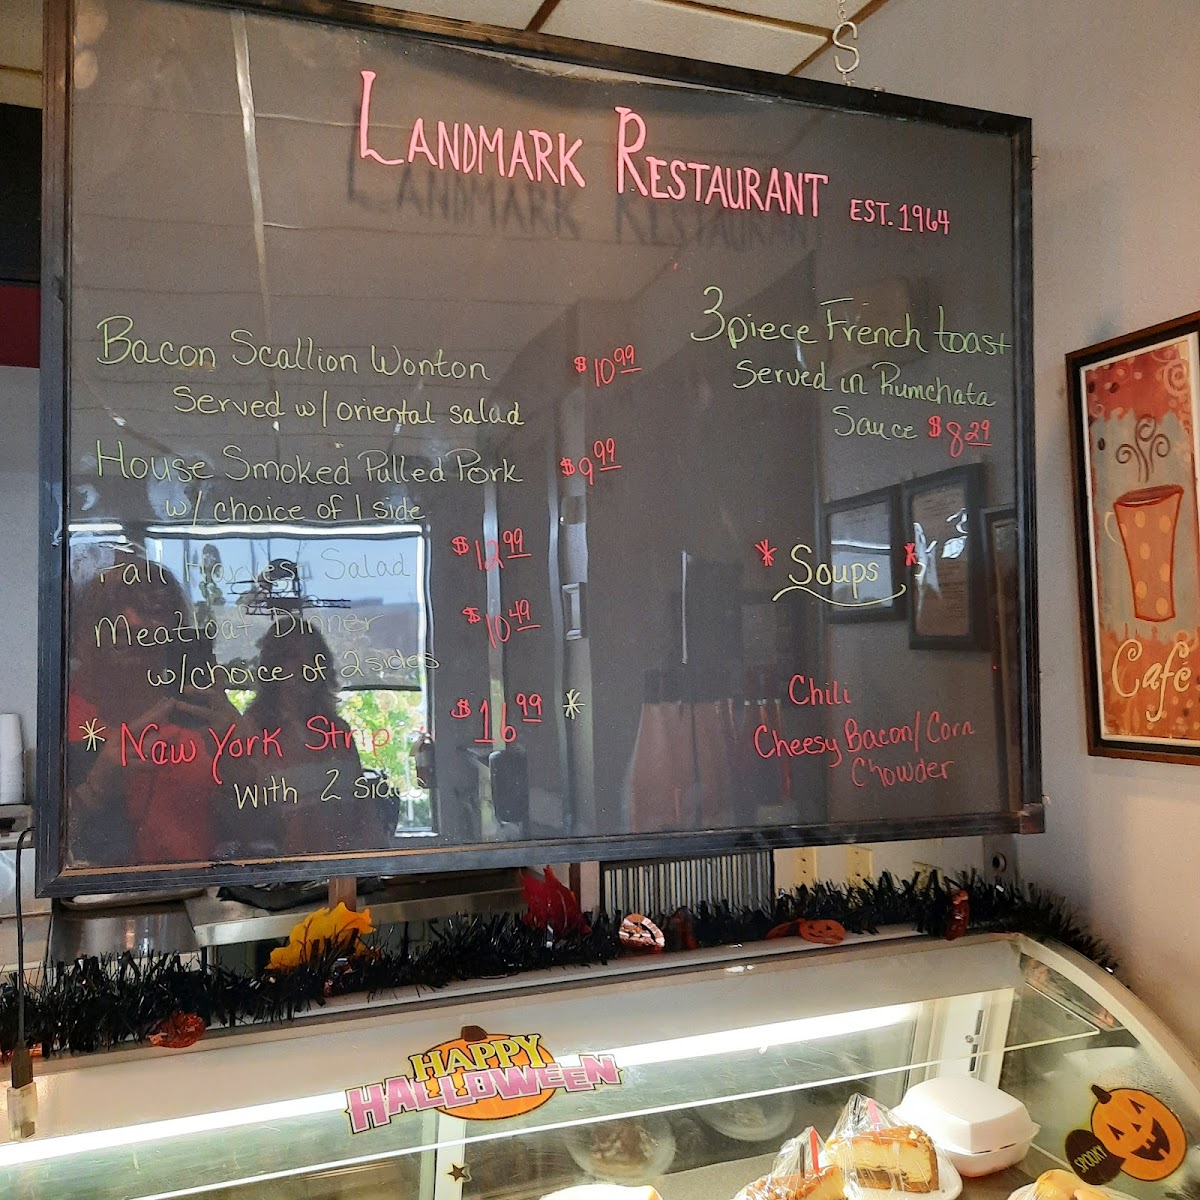 LANDMARK RESTAURANT EST. 1964
Bacon Scallion Wonton $10.99
Served w/ oriental salad
House Smoked Pulled Pork $9.99
w/ choice of 1 side
Fall Harvest Salad $12.99
Meatloaf Dinner $10.49
w/choice of 2 sides
* New York Strip $16.99 *
with 2 sides
3 piece French toast
Served in Rumchata
Sauce $8.29
* Soups *
Chili
Cheesy Bacon/Corn
Chowder
Café
HAPPY
HALLOWEEN
SPOOKY